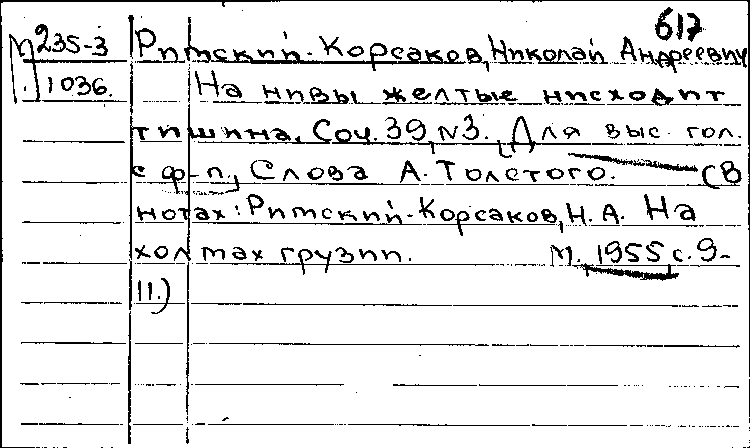 617
М235-3 Римский-Корсаков, Николай Андреевич
1036. На нивы желтые нисходит
тишина. Соч. 39, N3. [Для выс. гол.
с ф-п.], Слова А. Толстого. (В
нотах: Римский-Корсаков, Н. А. На
холмах грузии. М., 1955, с. 9-
11.)